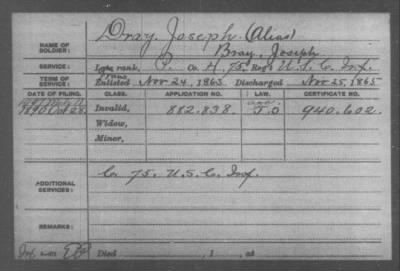 Dray, Joseph. (Alias)
NAME OF SOLDIER: Bray, Joseph
SERVICE: Late rank, P. Co. H, 75, Reg't U.S.C. Inf.
Trans
TERM OF SERVICE: Enlisted Nov. 24, 1863. Discharged Nov. 25, 1865
DATE OF FILING. CLASS. APPLICATION NO. LAW. CERTIFICATE NO.
1890 Oct 28. Invalid, 882.838. J.O 940.602.
Widow,
Minor,
ADDITIONAL SERVICES: Co. 75. U.S.C. Inf.
REMARKS:
Died , 1 , at